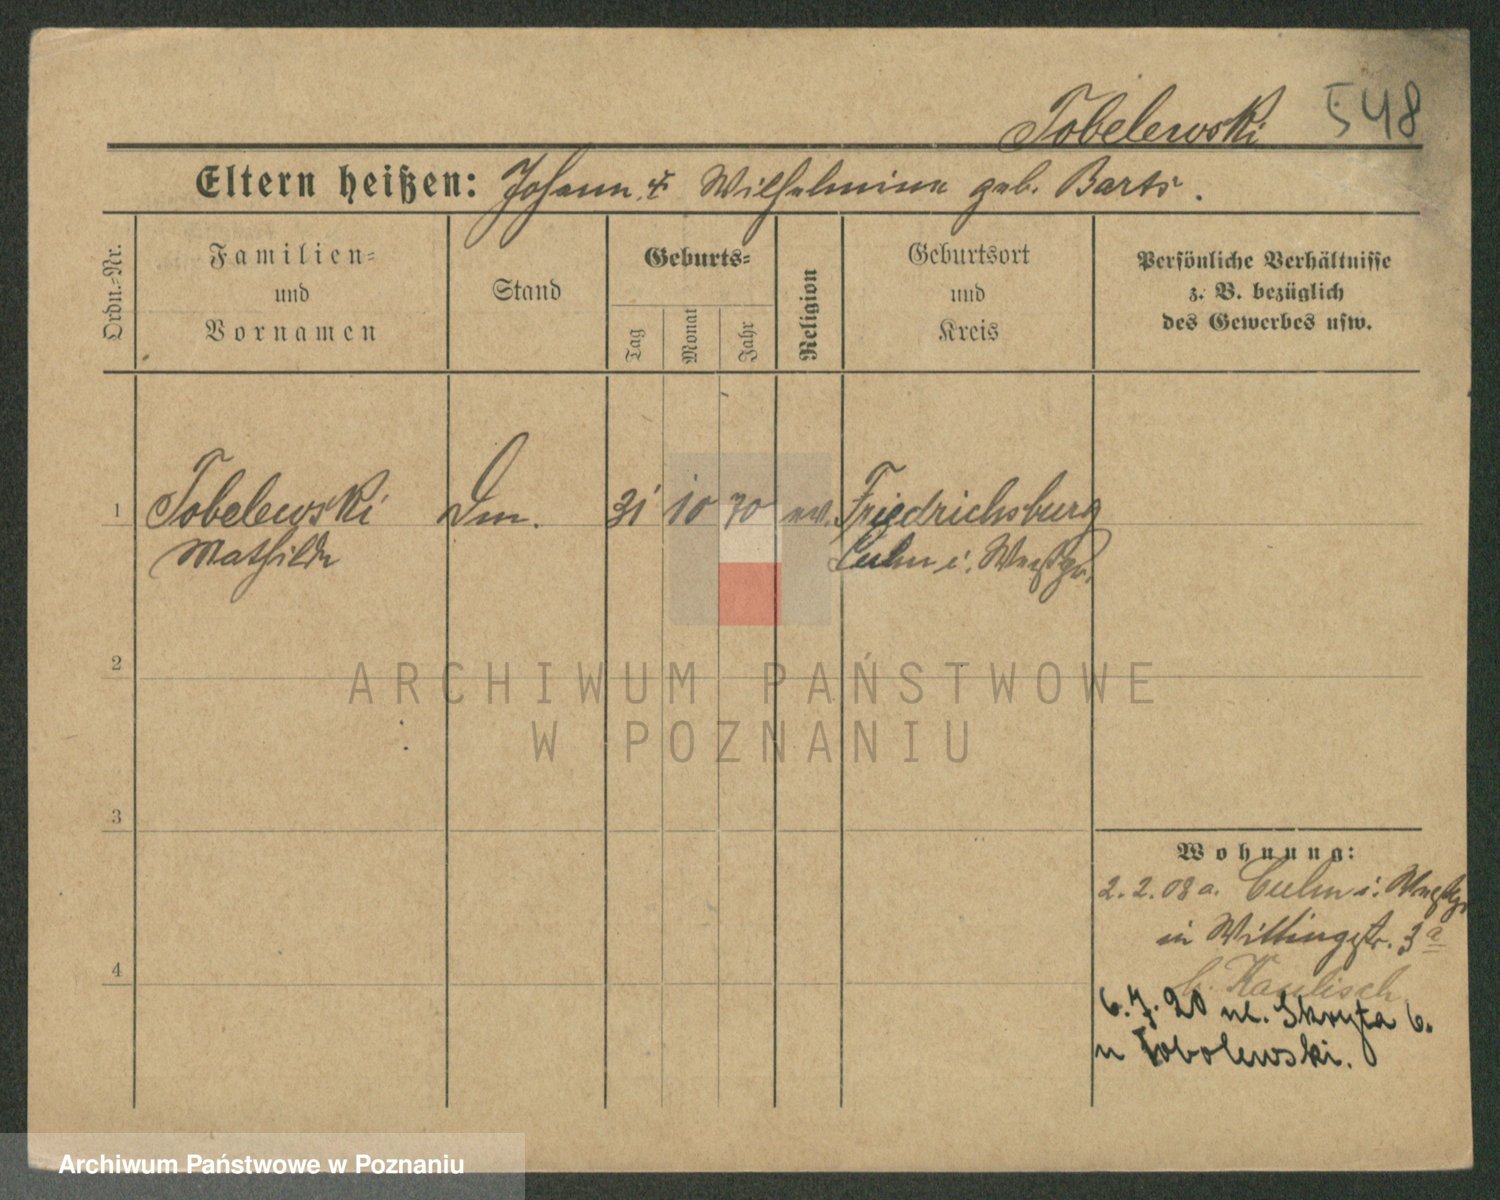 Tobelewski 548
Eltern heißen: Johann u. Wilhelmine geb. Barts.
Ordn.-Nr.
Familien-
und
Vornamen
Stand
Geburts-
Tag
Monat
Jahr
Religion
Geburtsort
und
Kreis
Persönliche Verhältnisse
z. B. bezüglich
des Gewerbes usw.
1 Tobelewski 31 10 70 ev. Friedrichsburg
Mathilde Culm i. Westpr.
2
ARCHIWUM PAŃSTWOWE
W POZNANIU
3
Wohnung:
2.2.08 a. Culm i. Westpr.
in Wittingstr. 3a
4
b. Kaulisch
6.7.20 ul. Skryta 6.
u Tobolewski.
Archiwum Państwowe w Poznaniu